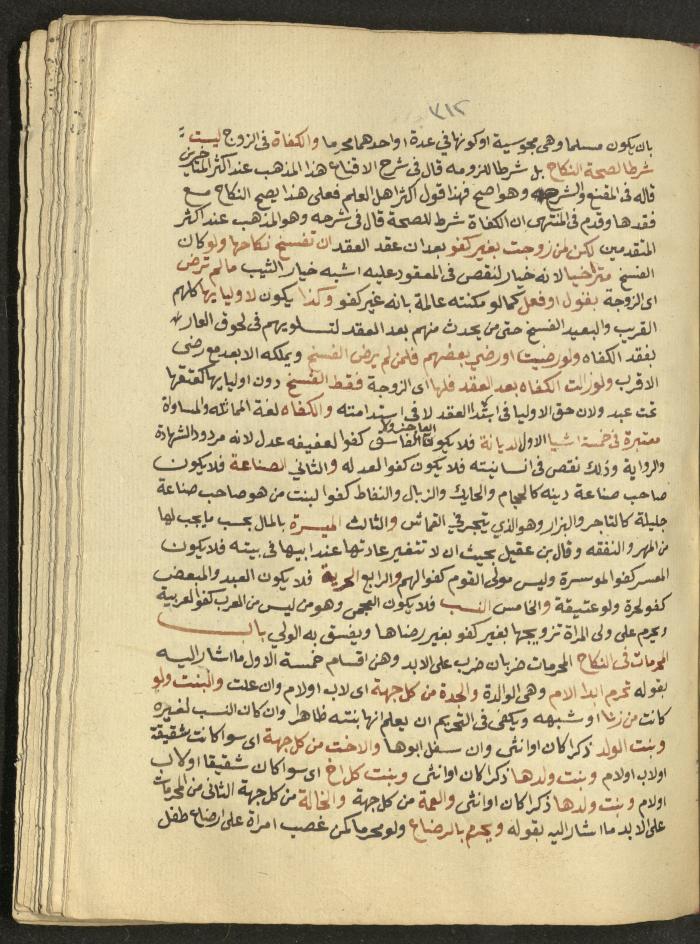 ٣١٢
بان يكون مسلما وهي مجوسية او كونها في عدة او احدهما محرما والكفاة في الزوج ليست
شرطا لصحة النكاح بل شرطا للزومه قال في شرح الاقناع هذا المذهب عند اكثر المتاخرين
قاله في المقنع والشرح وهو اصح فهذا قول اكثر اهل العلم فعلى هذا يصح النكاح مع
فقدها وقدم في المنتهى ان الكفاة شرط للصحة قال في شرحه وهو المذهب عند اكثر
المتقدمين لكن لمن زوجت بغير كفو بعد ان عقد العقد ان تفسخ نكاحها ولو كان
الفسخ متراخيا لانه خيار لنقص في المعقود عليه اشبه خيار الثيب ما لم ترض
اي الزوجة بقول او فعل كما لو مكنته عالمة بانه غير كفو وكذا يكون لاوليايها كلهم
القرب والبعيد الفسخ حتى من يحدث منهم بعد العقد لتساويهم في لحوق العار
بفقد الكفاه ولو رضيت او رضي بعضهم فلمن لم يرض الفسخ ويملكه الابعد مع رضى
الاقرب ولو زالت الكفاه بعد العقد فلها اي الزوجة فقط الفسخ دون اوليايها كعتقها
تحت عبد ولان حق الاوليا في ابتدا العقد لا في استدامته والكفاه لغة المماثله والمساواة
معتبرة في خمسة اشيا الاول الديانة فلا يكون الفاجر ولا الفاسق كفوا لعفيفه عدل لانه مردود الشهادة
والرواية وذلك نقص في انسانيته فلا يكون كفوا لعدله والثاني الصناعة فلا يكون
صاحب صناعة دينه كالحجام والحايك والزبال والنفاط كفوا لبنت من هو صاحب صناعة
جليلة كالتاجر والبزار وهو الذي يتجر في القماش والثالث الميسرة بالمال بحسب ما يجب لها
من المهر والنفقه وقال بن عقيل بحيث ان لا تتغير عادتها عند ابيها في بيته فلا يكون
المعسر كفوا لموسسرة وليس مولى القوم كفوا لهم والرابع الحرية فلا يكون العبد والمبعض
كفو لحرة ولو عتيقة والخامس النسب فلا يكون العجمي وهو من ليس من العرب كفوا لعربية
ويحرم على ولي المراة تزويجها بغير كفو بغير رضاها ويفسق به الولي باب
المحرمات في النكاح المحرمات ضربان ضرب على الابد وهن اقسام خمسة الاول ما اشار اليه
بقوله تحرم ابدا الام وهي الوالدة والجدة من كل جهة اي لاب او لام وان علت والبنت ولو
كانت من زنا او شبهه ويكفي في التحريم ان يعلم انها بنته ظاهرا وان كان النسب لغيره
وبنت الولد ذكرا كان او انثى وان سفل ابوها والاخت من كل جهة اي سوا كانت شقيقة
او لاب او لام وبنت ولدها ذكرا كان او انثى وبنت كل اخ اي سوا كان شقيقا او لاب
او لام وبنت ولدها ذكرا كان او انثى والعمة من كل جهة والخالة من كل جهة الثاني من المحرمات
على الابد ما اشار اليه بقوله ويحرم بالرضاع ولو محرما كمن غصب امراة على ارضاع طفل